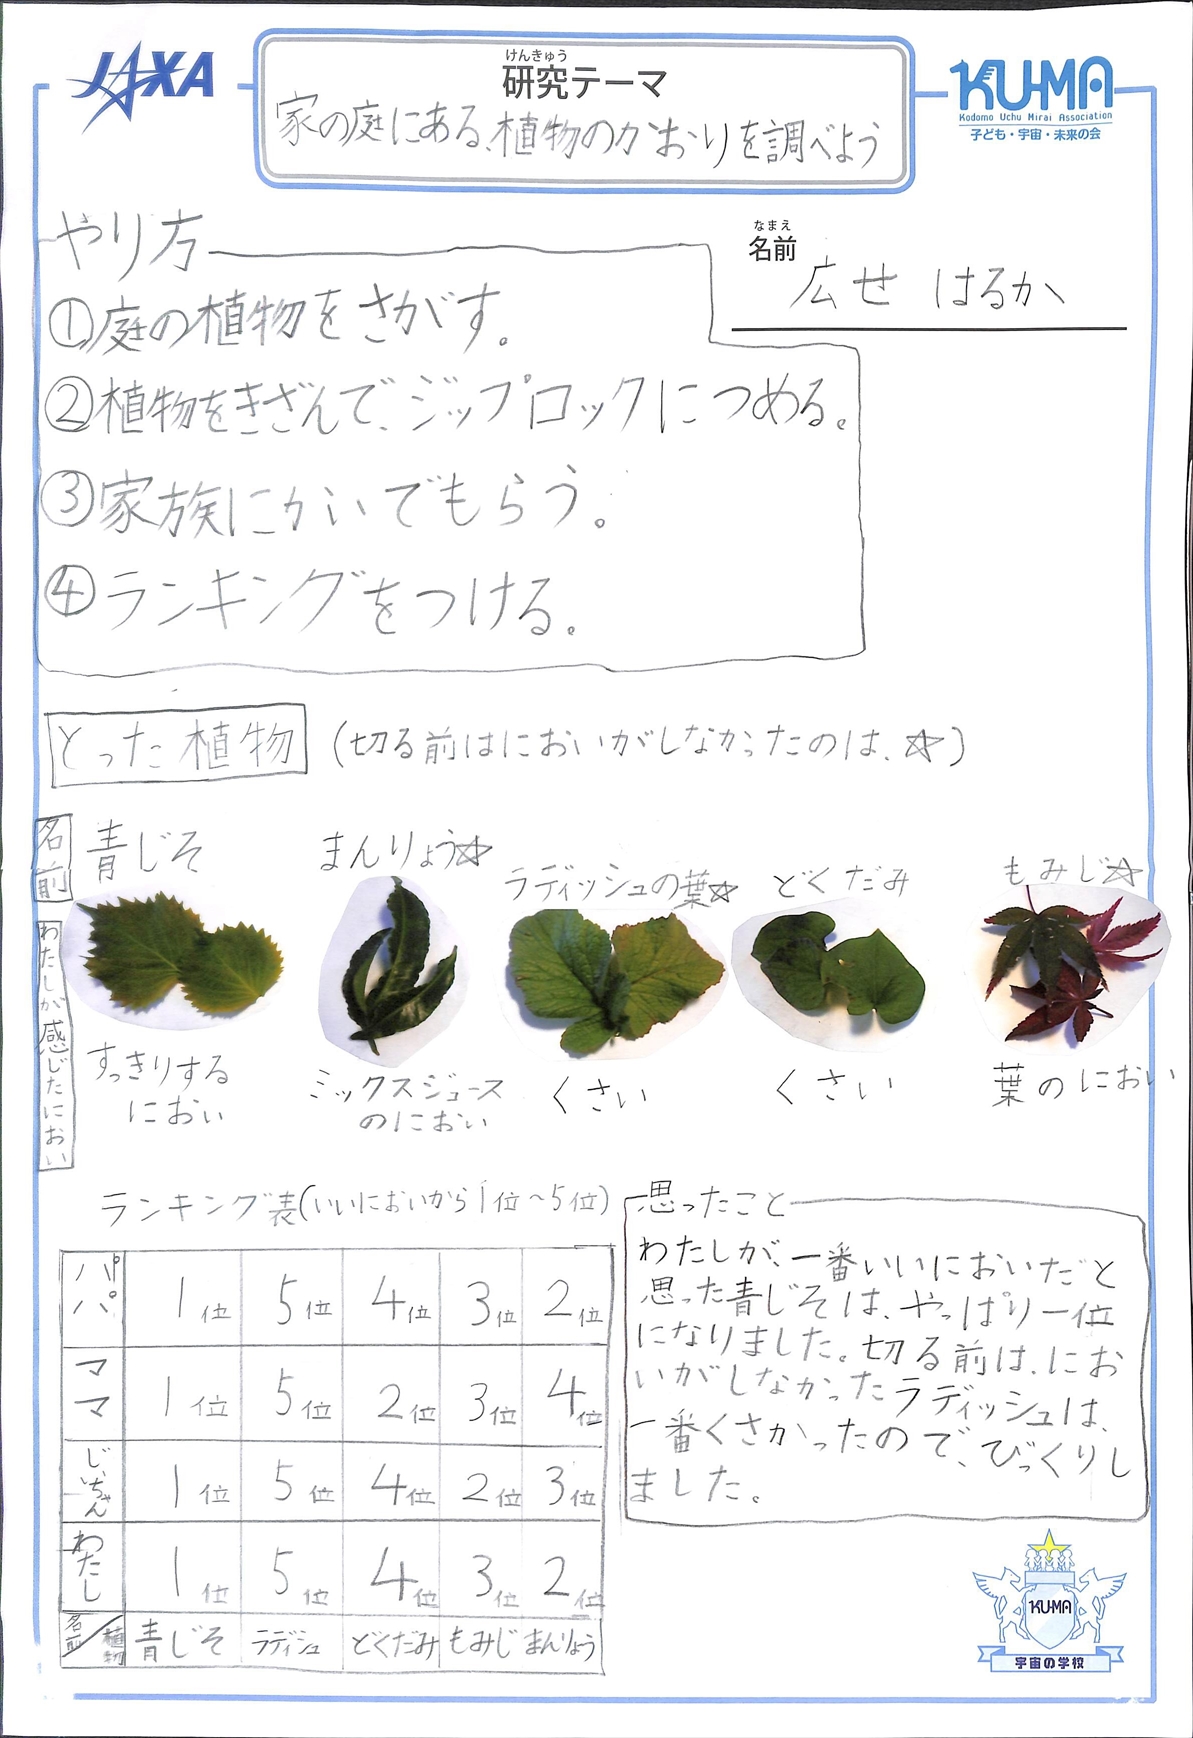 JAXA
けんきゅう
研究テーマ
家の庭にある、植物のかおりを調べよう
KU-MA
Kodomo Uchu Mirai Association
子ども・宇宙・未来の会
なまえ
名前
広せ はるか
やり方
①庭の植物をさがす。
②植物をきざんで、ジップロックにつめる。
③家族にかいでもらう。
④ランキングをつける。
とった植物 (切る前はにおいがしなかったのは、☆)
名前
青じそ
まんりょう☆
ラディッシュの葉☆
どくだみ
もみじ☆
わたしが感じたにおい
すっきりする
におい
ミックスジュース
のにおい
くさい
くさい
葉のにおい
ランキング表(いいにおいから1位〜5位)
パパ 1位 5位 4位 3位 2位
ママ 1位 5位 2位 3位 4位
じいちゃん 1位 5位 4位 2位 3位
わたし 1位 5位 4位 3位 2位
名前/植物 青じそ ラディシュ どくだみ もみじ まんりょう
思ったこと
わたしが、一番いいにおいだと
思った青じそは、やっぱり一位
になりました。切る前は、にお
いがしなかったラディッシュは、
一番くさかったので、びっくりし
ました。
KU-MA
宇宙の学校